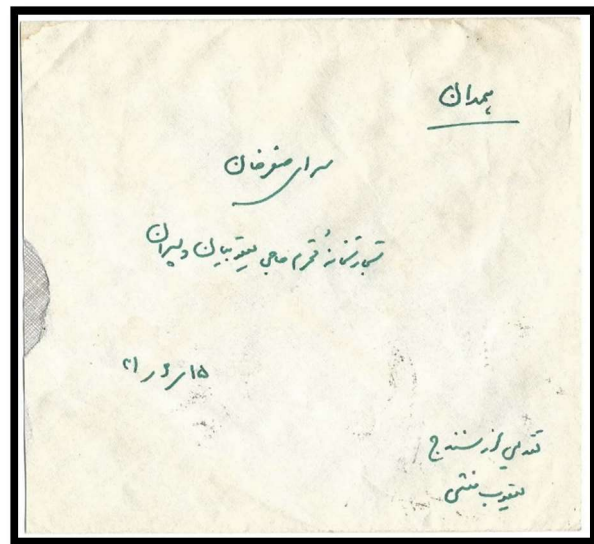 همدان
سرای صفرخان
تجارتخانهٔ محترم حاجی یعقوبیان و پسران
تقدیمی از سنندج
یعقوب منشی